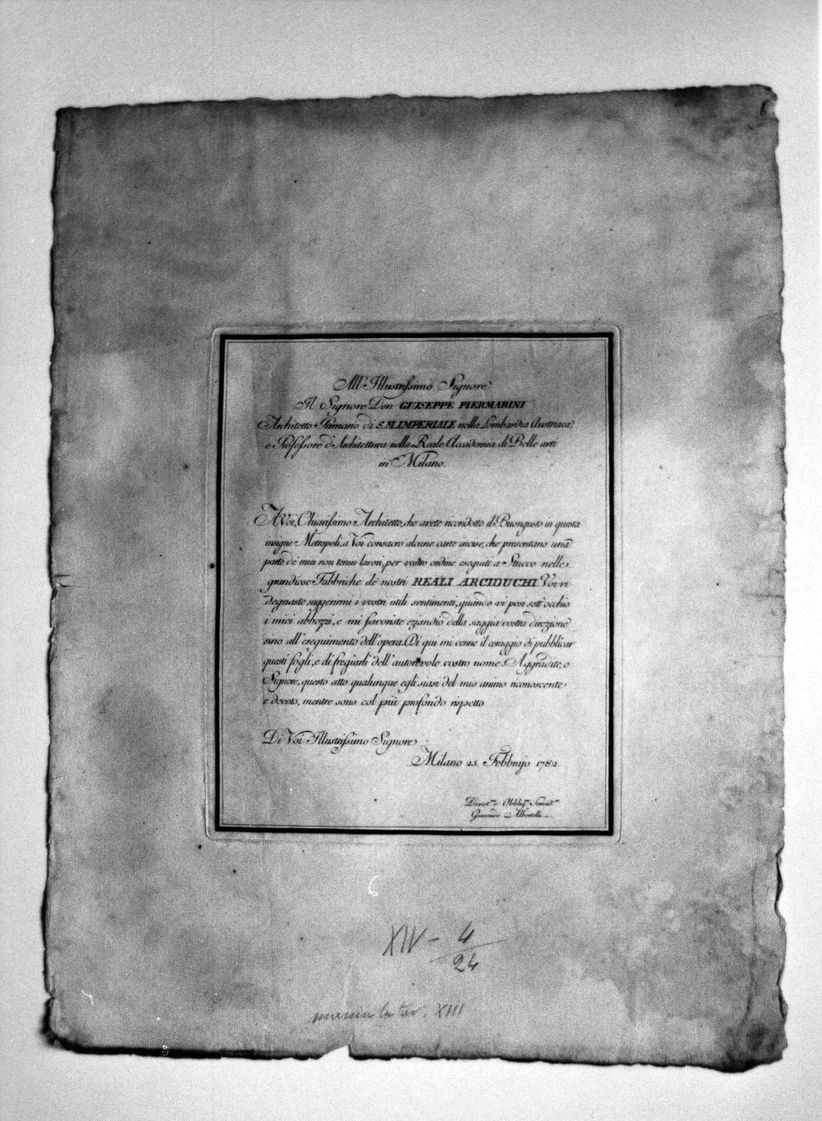 All' Illustrissimo Signore
Il Signore Don GUISEPPE PIERMARINI
Architetto Primario di S.M. IMPERIALE nella Lombardia Austriaca
e Professore d'Architettura nella Reale Accademia di Belle arti
in Milano.
A Voi, Chiarissimo Architetto, che avete ricondotto il Buongusto in questa
insigne Metropoli, a Voi consacro alcune carte incise, che presentano una
parte de' miei non tenui lavori, per vostro ordine eseguiti a Stucco nelle
grandiose Fabbriche de' nostri REALI ARCIDUCHI. Voi vi
degnaste suggerirmi i vostri utili sentimenti, quando vi posi sott' occhio
i miei abbozzi, e mi favoriste eziandio della saggia vostra direzione
sino all' eseguimento dell' opera. Di qui mi venne il coraggio di pubblicar
questi fogli, e di fregiarli dell' autorevole vostro nome. Aggradite, o
Signore, questo atto qualunque egli siasi del mio animo riconoscente
e devoto, mentre sono col più profondo rispetto
Di Voi Illustrissimo Signore
Milano 25. Febbrajo 1782.
Devot.mo e Obblig.mo Servid.re
Giocondo Albertolli
XIV - 4
24
manca la tav. XIII